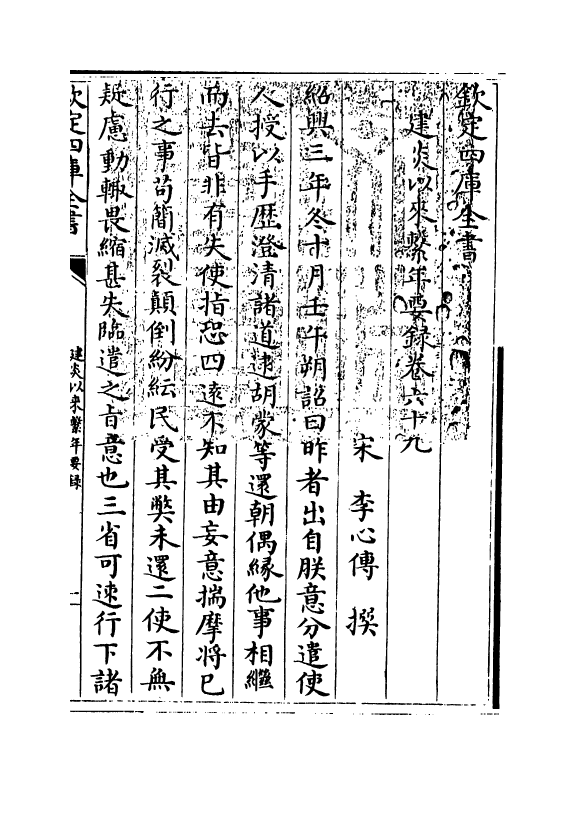 欽定四庫全書
建炎以來繫年要録卷六十九
宋 李心傳 撰
紹興三年冬十月壬午朔詔曰昨者出自朕意分遣使
人授以手歴澄清諸道逮胡蒙等還朝偶緣他事相繼
而去皆非有失使指恐四逺不知其由妄意揣摩將已
行之事茍簡滅裂顛倒紛紜民受其弊未還二使不無
疑慮動輒畏縮甚失臨遣之㫖意也三省可速行下諸
欽定四庫全書
建炎以來繫年要録
一